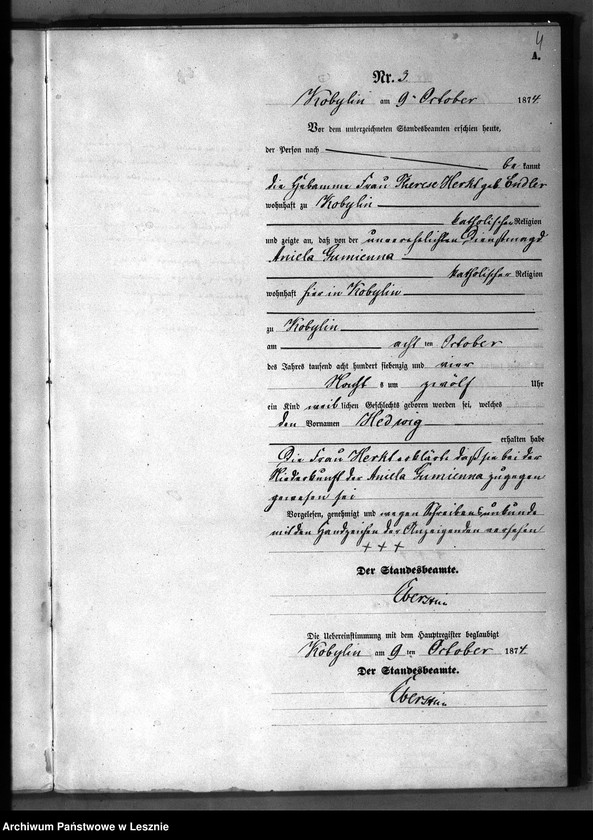 4
A.
Nr. 3
Kobylin am 9. October 1874.
Vor dem unterzeichneten Standesbeamten erschien heute,
der Person nach
bekannt
die Hebamme Frau Therese Herkt geb. Endler
wohnhaft zu Kobylin
katholischer Religion
und zeigte an, daß von der unverehelichten Dienstmagd
Aniela Gumienna
katholischer Religion
wohnhaft hier in Kobylin
zu Kobylin
am acht ten October
des Jahres tausend acht hundert siebenzig und vier
Nachts um zwölf Uhr
ein Kind weiblichen Geschlechts geboren worden sei, welches
den Vornamen Hedwig
erhalten habe
Die Frau Herkt erklärte daß sie bei der
Niederkunft der Aniela Gumienna zugegen
gewesen sei
Vorgelesen, genehmigt und wegen Schreibensunkunde
mit den Handzeichen der Anzeigenden versehen
+ + +
Der Standesbeamte.
Eberstein
Die Uebereinstimmung mit dem Hauptregister beglaubigt
Kobylin am 9 ten October 1874
Der Standesbeamte.
Eberstein
Archiwum Państwowe w Lesznie